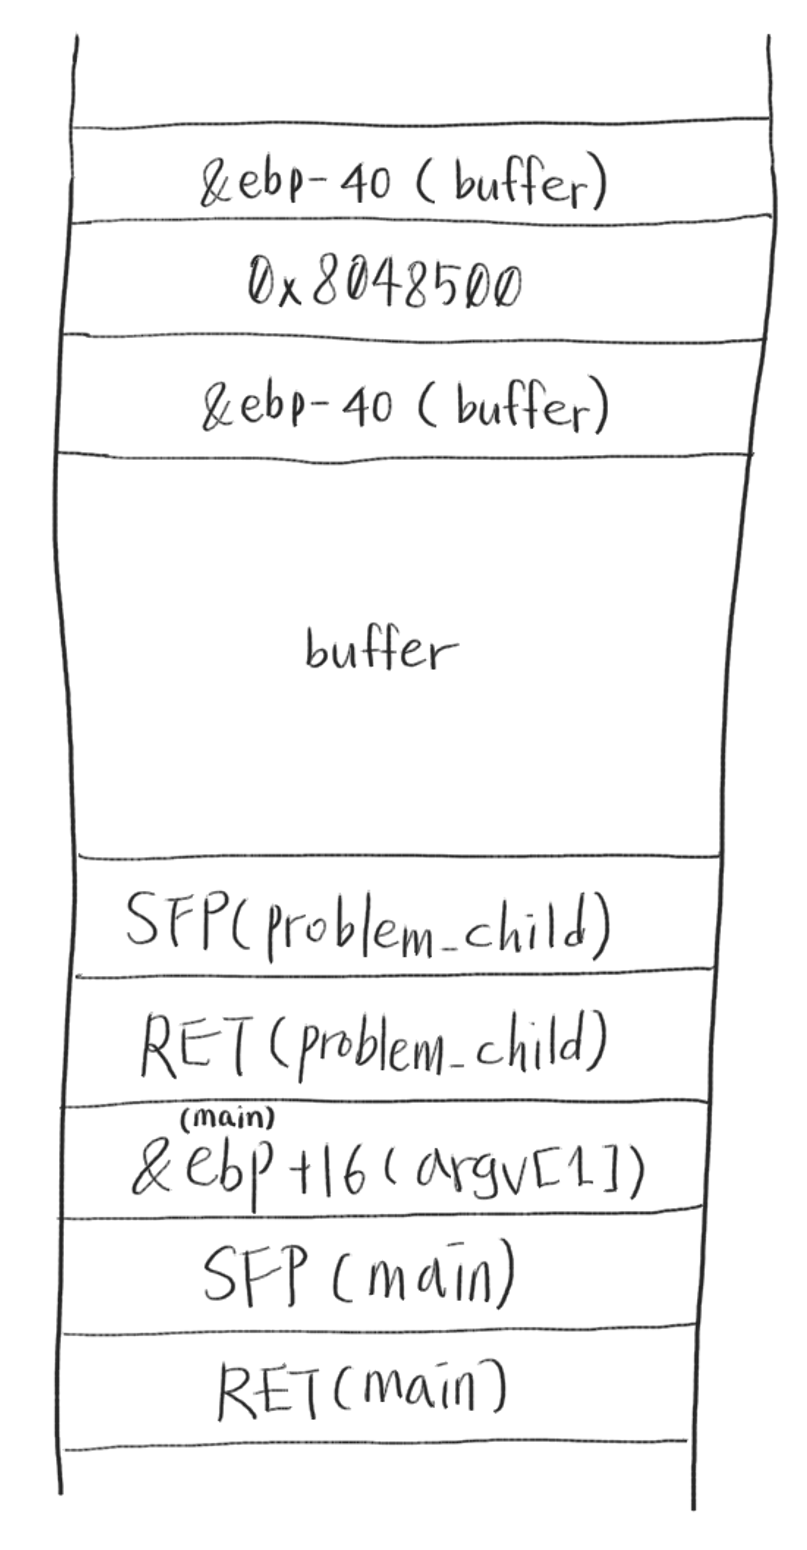 &ebp-40 (buffer)
0x8048500
&ebp-40 (buffer)
buffer
SFP(problem_child)
RET(problem_child)
(main)
&ebp+16(argv[1])
SFP(main)
RET(main)